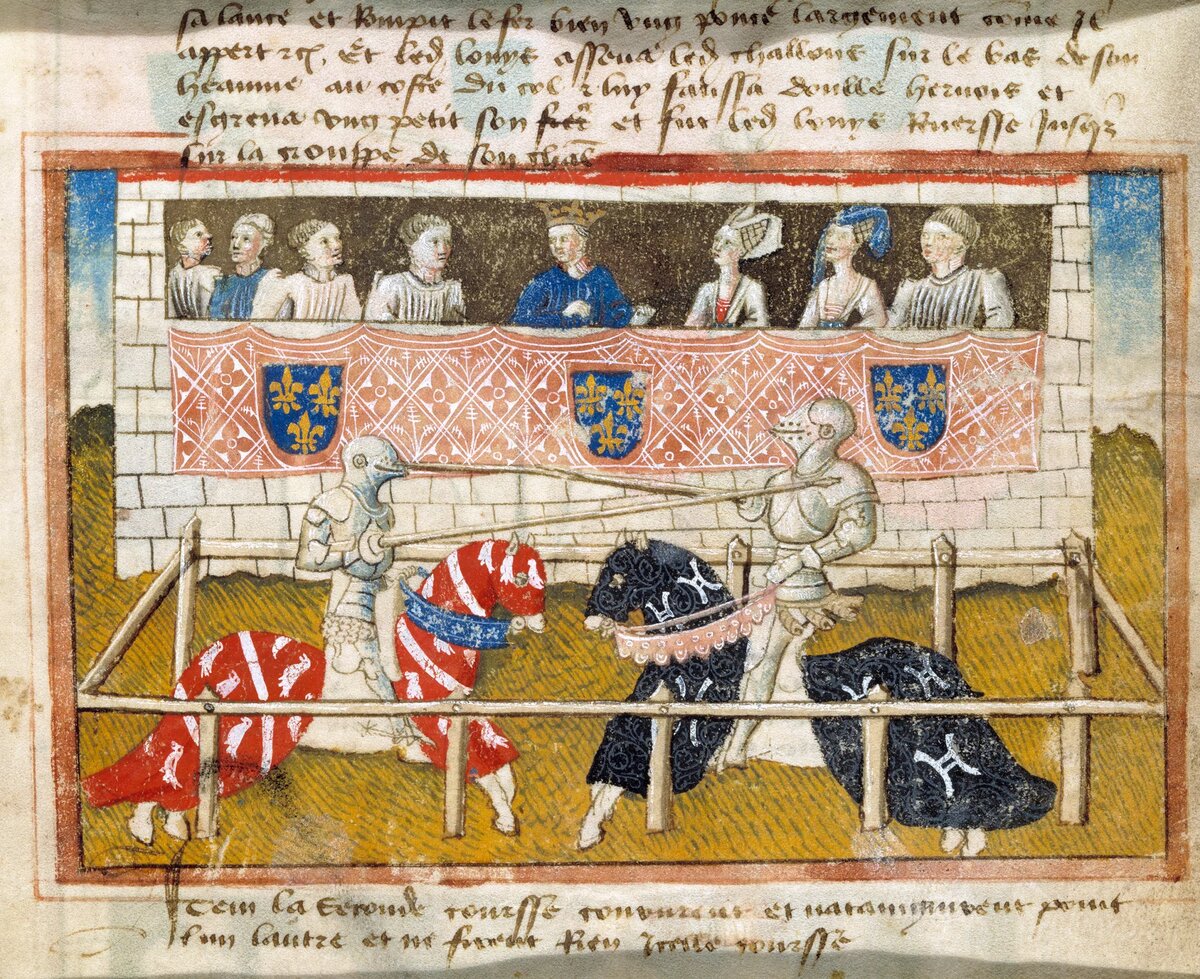 sa lance et Rompit le fer bien ung poulce largement come il
appert rc. Et led louys assena led challons sur le bas de son
heaume au coste du col z luy faussa doulle hernois et
esgrena ung petit son fer et fut led louys Renversse Jusqz
sur la crouppe de son
Item la Seconde coursse coururent et natamndrent point
lun lautre et ne firent Rien Icelle coursse